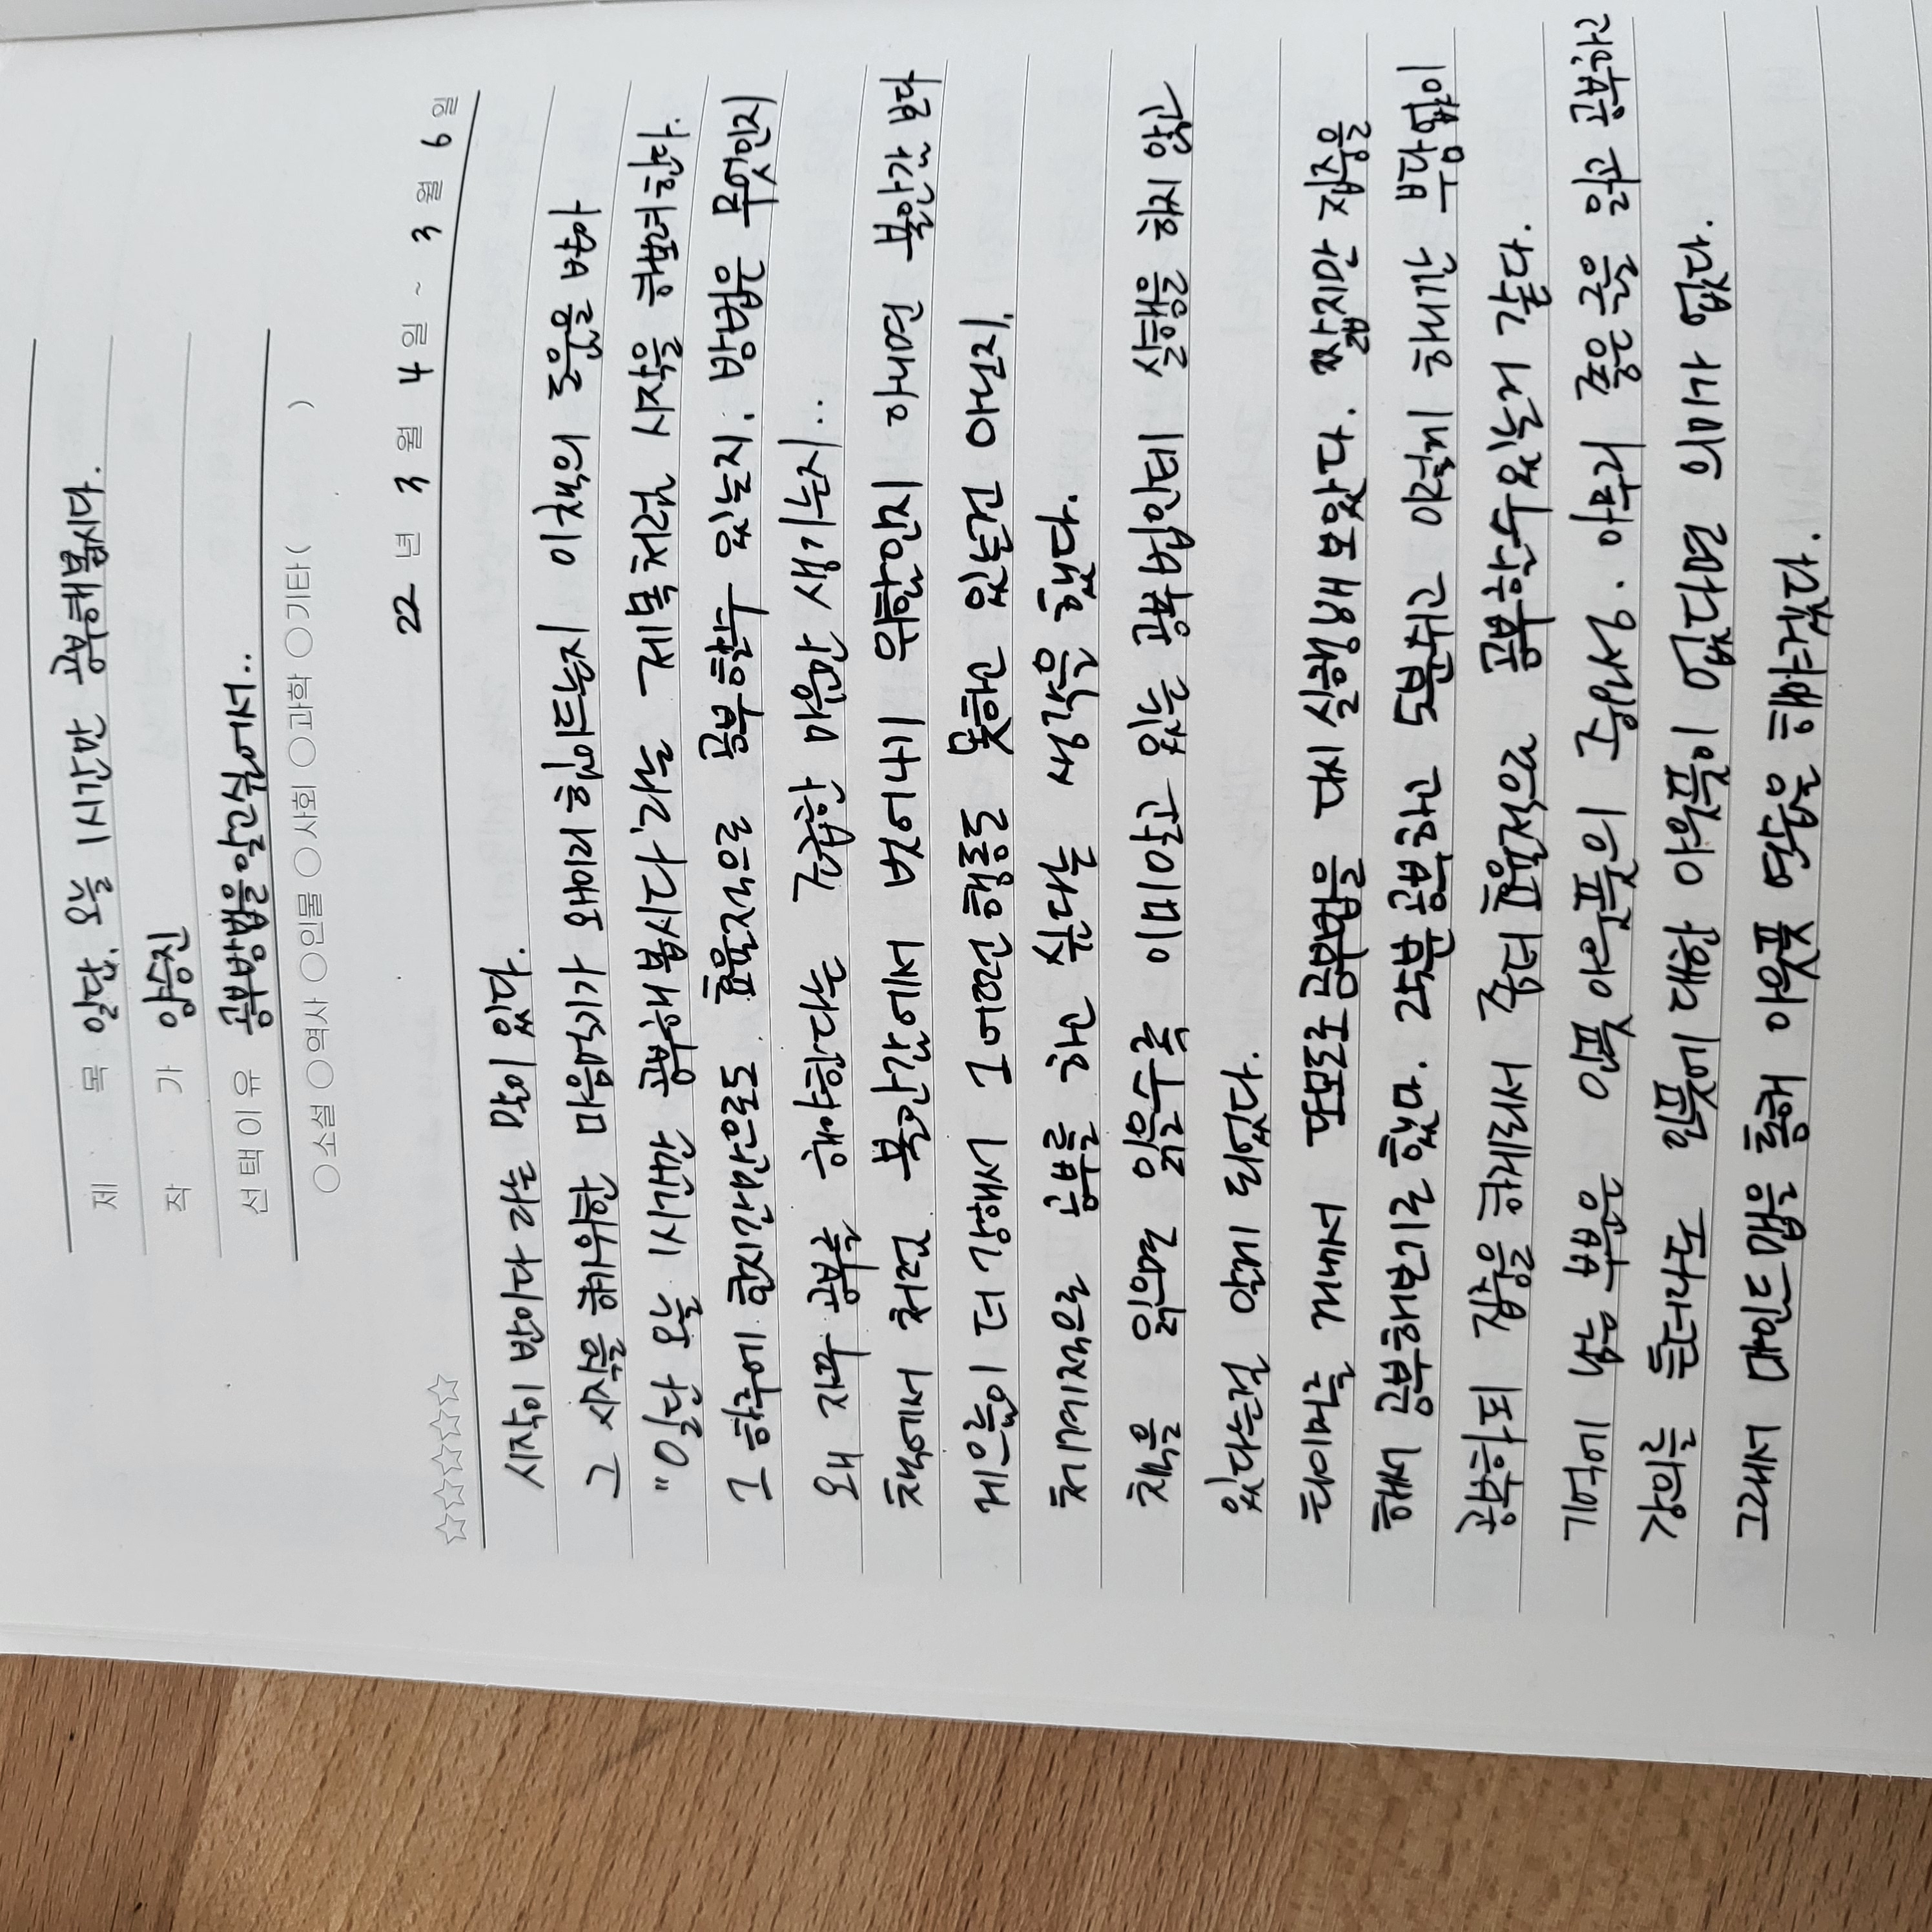 제 목 일단, 오늘 1시간만 공부해봅시다.
작 가 양승진
선택이유 공부방법을 알고싶어서..
소설 역사 인물 사회 과학 기타 ( )
22 년 3 월 4 일 ~ 3 월 6 일
시작이 반이다 라는 말이 있다.
그 시작을 하기위한 마음먹기가 왜이리 힘이드는지 이책의 도움을 받아
"일단 오늘 1시간만 공부해봅시다'라는 제목처럼 시작을 해보려한다.
그 하루에 한시간만으로도 효율적으로 공부할수 있는지, 방법은 무엇인지
왜 자꾸 공부를 해야한다는 조급한 마음만 생기는지..
책에서 처럼 불안감에서 벗어나기 위함인지 아니면 불안감 보다
게으름이 더 강해서 그어떤 행동도 못하고 있는건 아닌지,
체계적으로 공부를 하고 싶다는 생각을 했다.
책을 읽으면 읽을수록 이미알고 있는 공부법인데 실행을 하지 않고
있다는걸 알게 되었다.
타이머를 꺼내서 또모도로공부법을 다시 실행해 보았다. 짧지만 집중을
해서 공부해보기로 했다. 25분공부하고 5분쉬고 이렇게 하니깐 부담없이
공부하되 집중을 하게되서 좀더 효율적으로 공부할수있는거 같다.
기억에 남는 부분은 인풋 아웃풋의 중요성. 아무리 좋은 글을 읽고 공부하고
강의를 듣더라도 인풋에 대한 아웃풋이 없다면 의미가 없다.
그래서 마인드맵을 통해 아웃풋 연습을 해야겠다.